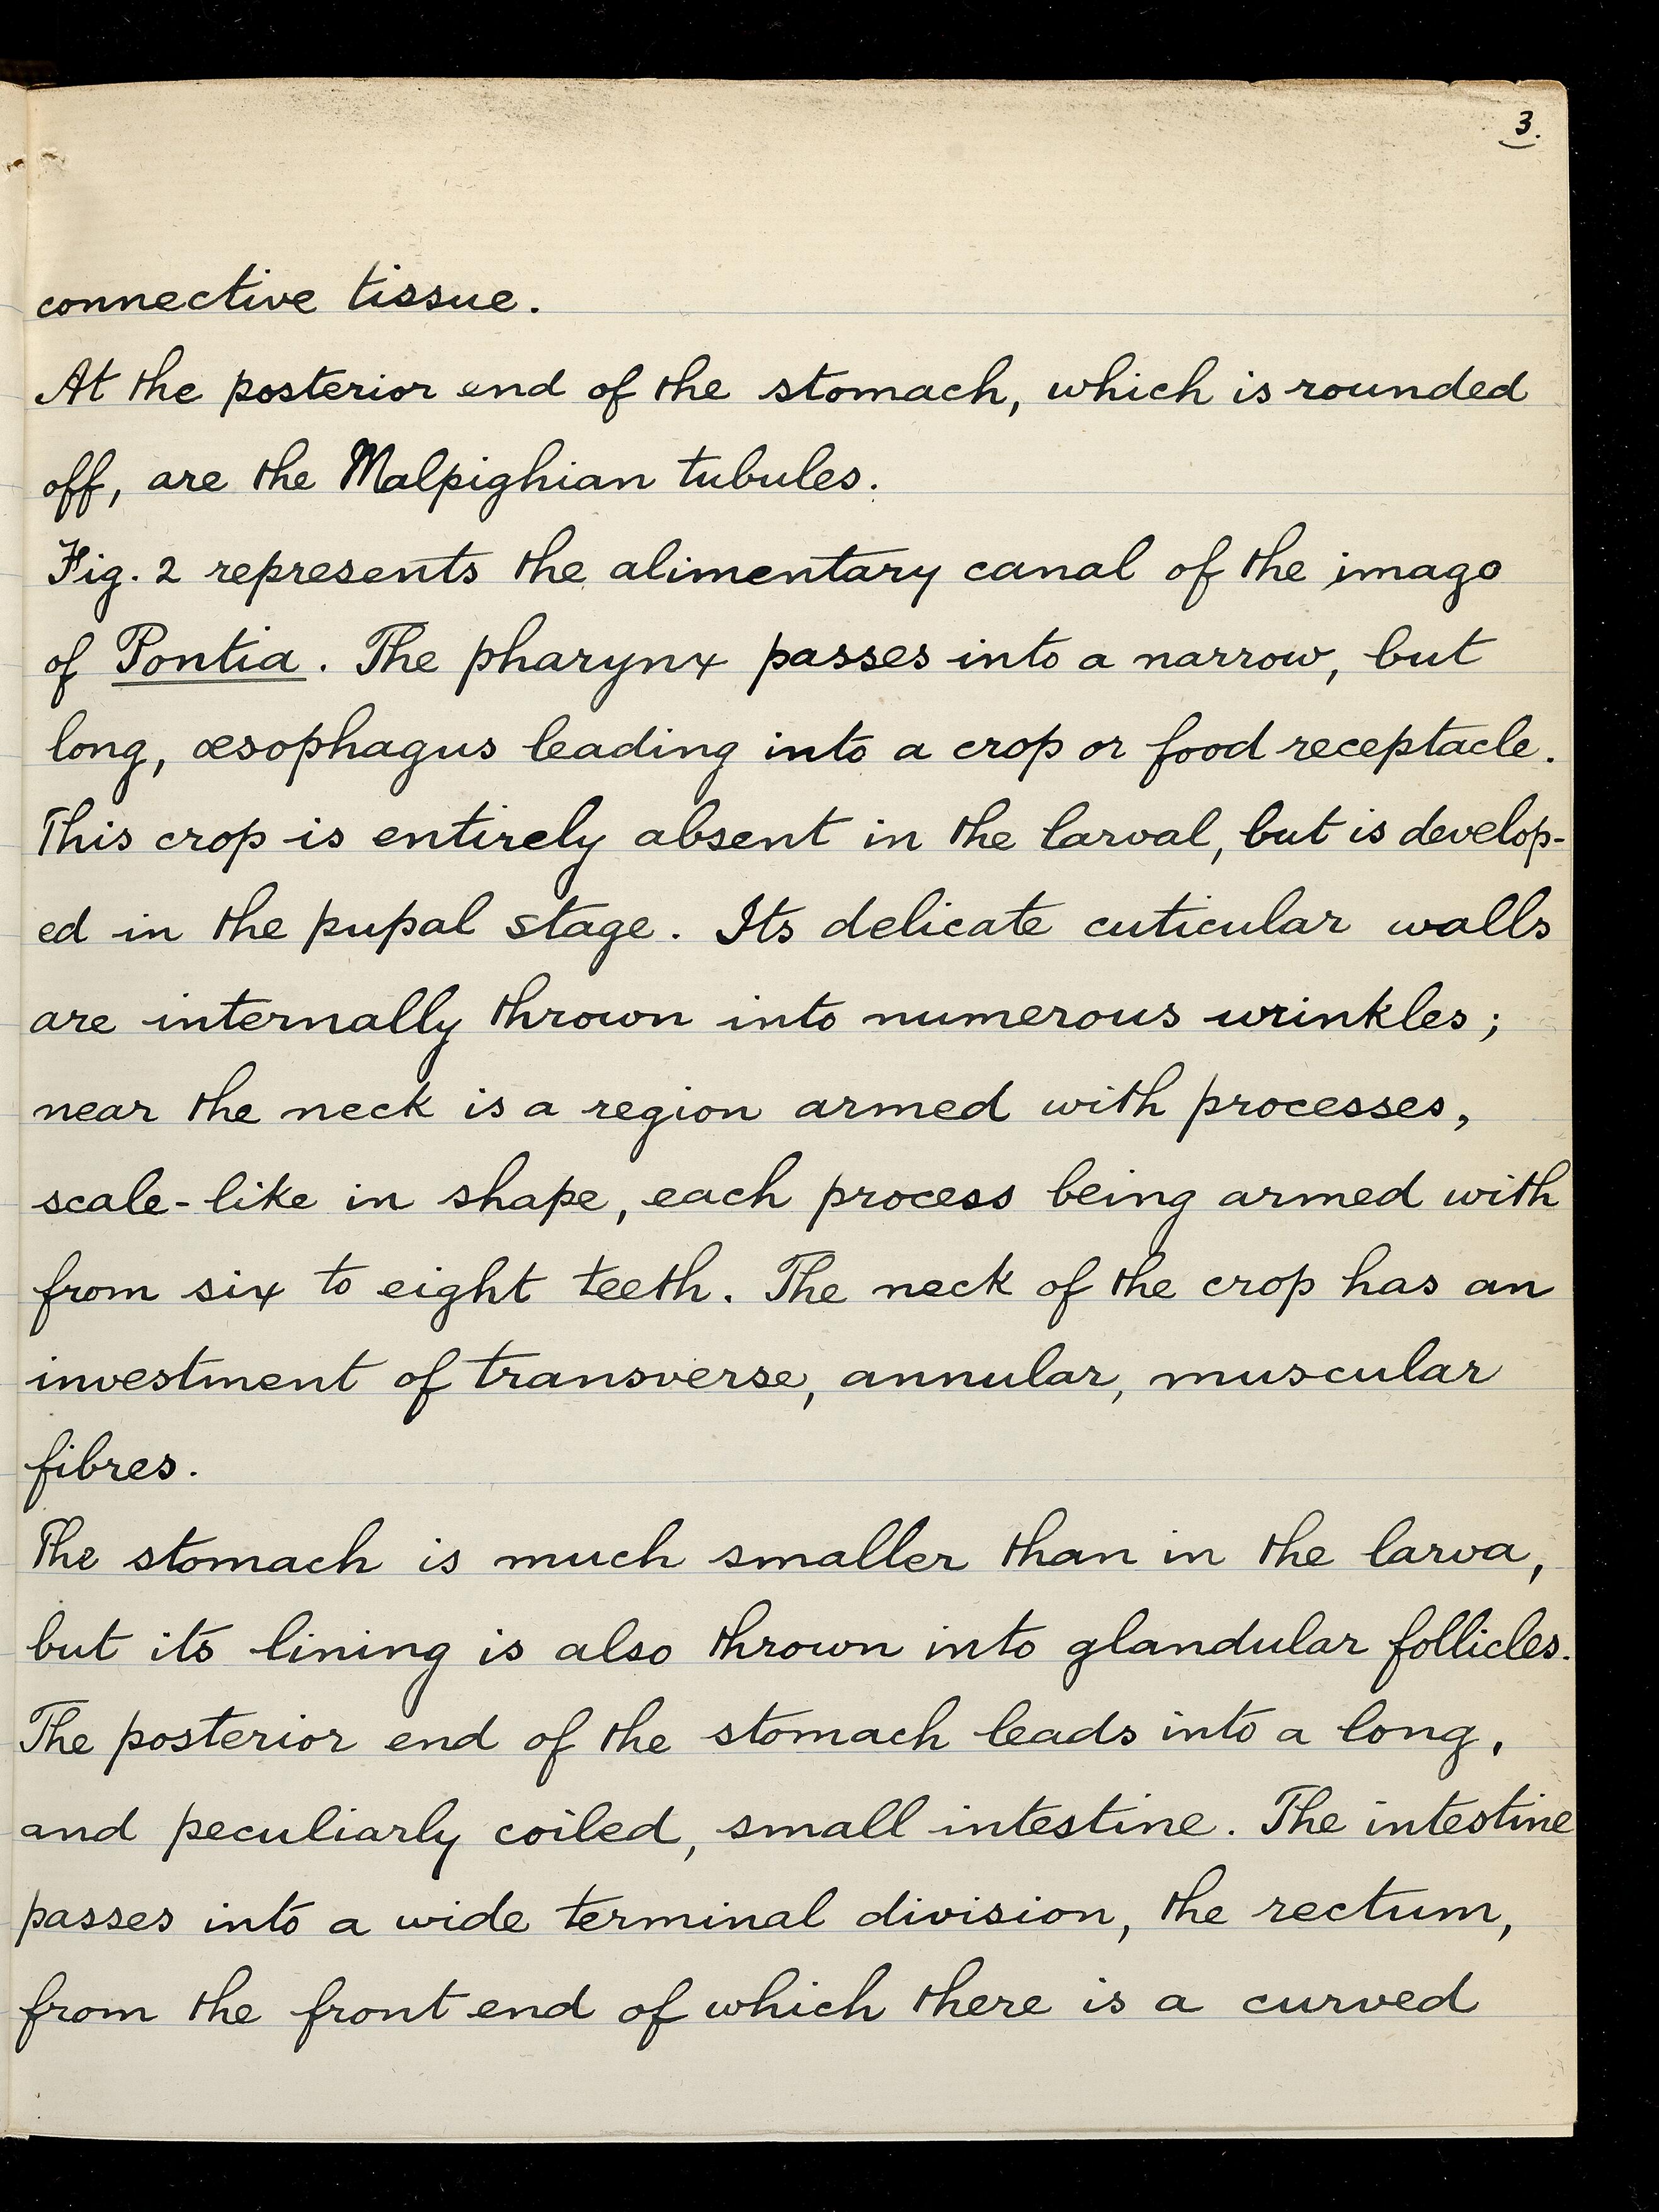 3.
connective tissue.
At the posterior end of the stomach, which is rounded
off, are the Malpighian tubules.
Fig. 2 represents the alimentary canal of the imago
of Pontia. The pharynx passes into a narrow, but
long, œsophagus leading into a crop or food receptacle.
This crop is entirely absent in the larval, but is develop-
ed in the pupal stage. Its delicate cuticular walls
are internally thrown into numerous wrinkles;
near the neck is a region armed with processes,
scale-like in shape, each process being armed with
from six to eight teeth. The neck of the crop has an
investment of transverse, annular, muscular
fibres.
The stomach is much smaller than in the larva,
but its lining is also thrown into glandular follicles.
The posterior end of the stomach leads into a long,
and peculiarly coiled, small intestine. The intestine
passes into a wide terminal division, the rectum,
from the front end of which there is a curved